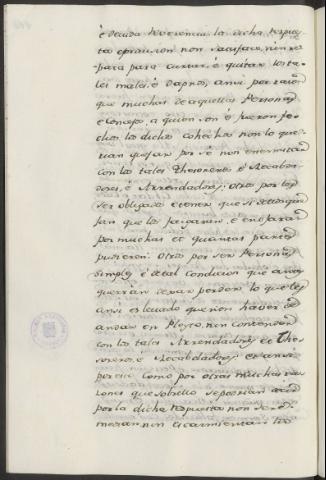 é devida reverencia la dicha respues-
ta é provision non satisface, nin re-
para para curar, é quitar los ta-
les males é daños, ansi por razon
que muchas de aquellas Personas
é Concejos, á quien son é fueron fe-
chos los dichos cohechos non lo que-
rian quejar por se non enemistar
con los tales Thesoreros é Recabda-
dores, é Arrendadores; otros por les
ser obligado é temer que si
que los fatigarán, é enojarán
por muchas et quantas partes
pudieren: Otros por ser Personas
simples é de tal condicion que antes
querrian dexar perder lo que les
ansi es levado que non haver de
andar en Pleyto, nin contender
con los tales Arrendadores, et The-
soreros, é Recabdadores;
como por otras muchas ra-
zones que sobrello se podrian
por la dicha respuesta non se
nin escarmentarian los